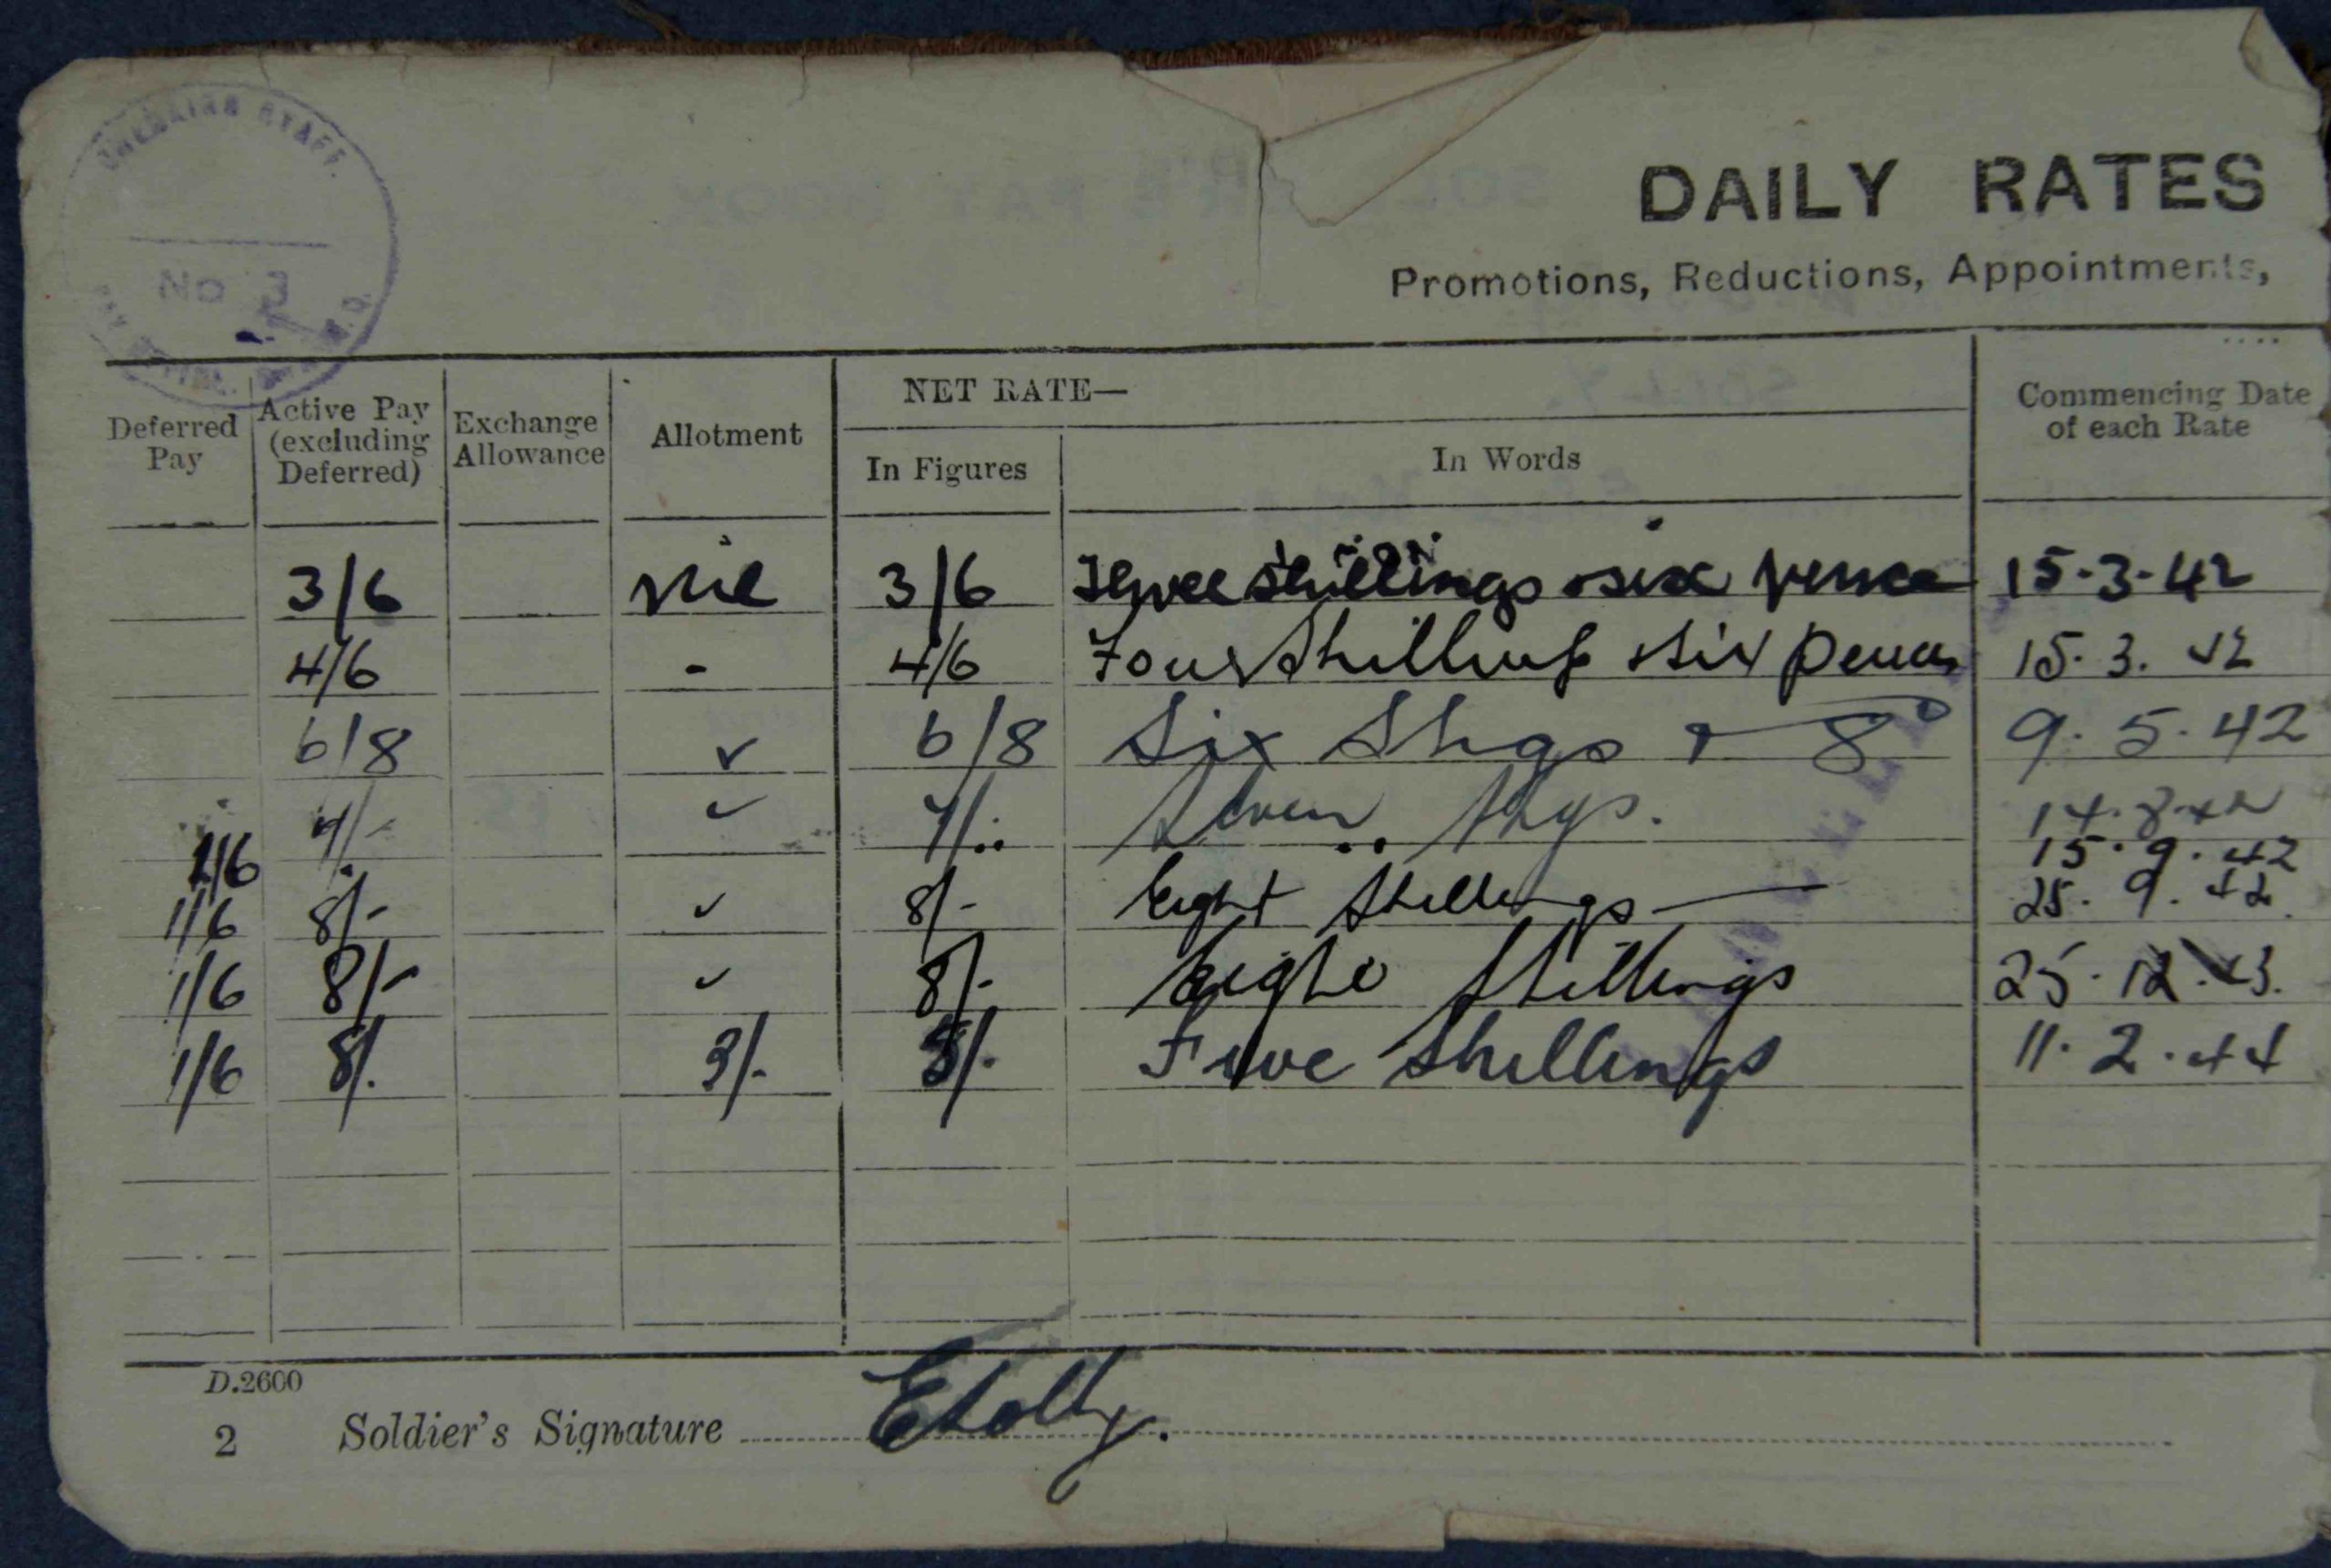 CHECKING STAFF.
No 3
DAILY RATES
Promotions, Reductions, Appointments,
Deferred Pay
Active Pay (excluding Deferred)
Exchange Allowance
Allotment
NET RATE—
In Figures
In Words
Commencing Date of each Rate
3/6 Nil 3/6 Three shillings six pence 15.3.42
4/6 - 4/6 Four Shillings six pence 15.3.42
6/8 ✓ 6/8 Six Shgs & 8 9.5.42
7/- ✓ 7/- Seven Shgs. 14.8.42
1/6 15.9.42
1/6 8/- ✓ 8/- Eight Shillings 25.9.42
1/6 8/- ✓ 8/- Eight Shillings 25.12.43.
1/6 8/. 3/- 5/- Five Shillings 11.2.44
D.2600
2 Soldier's Signature